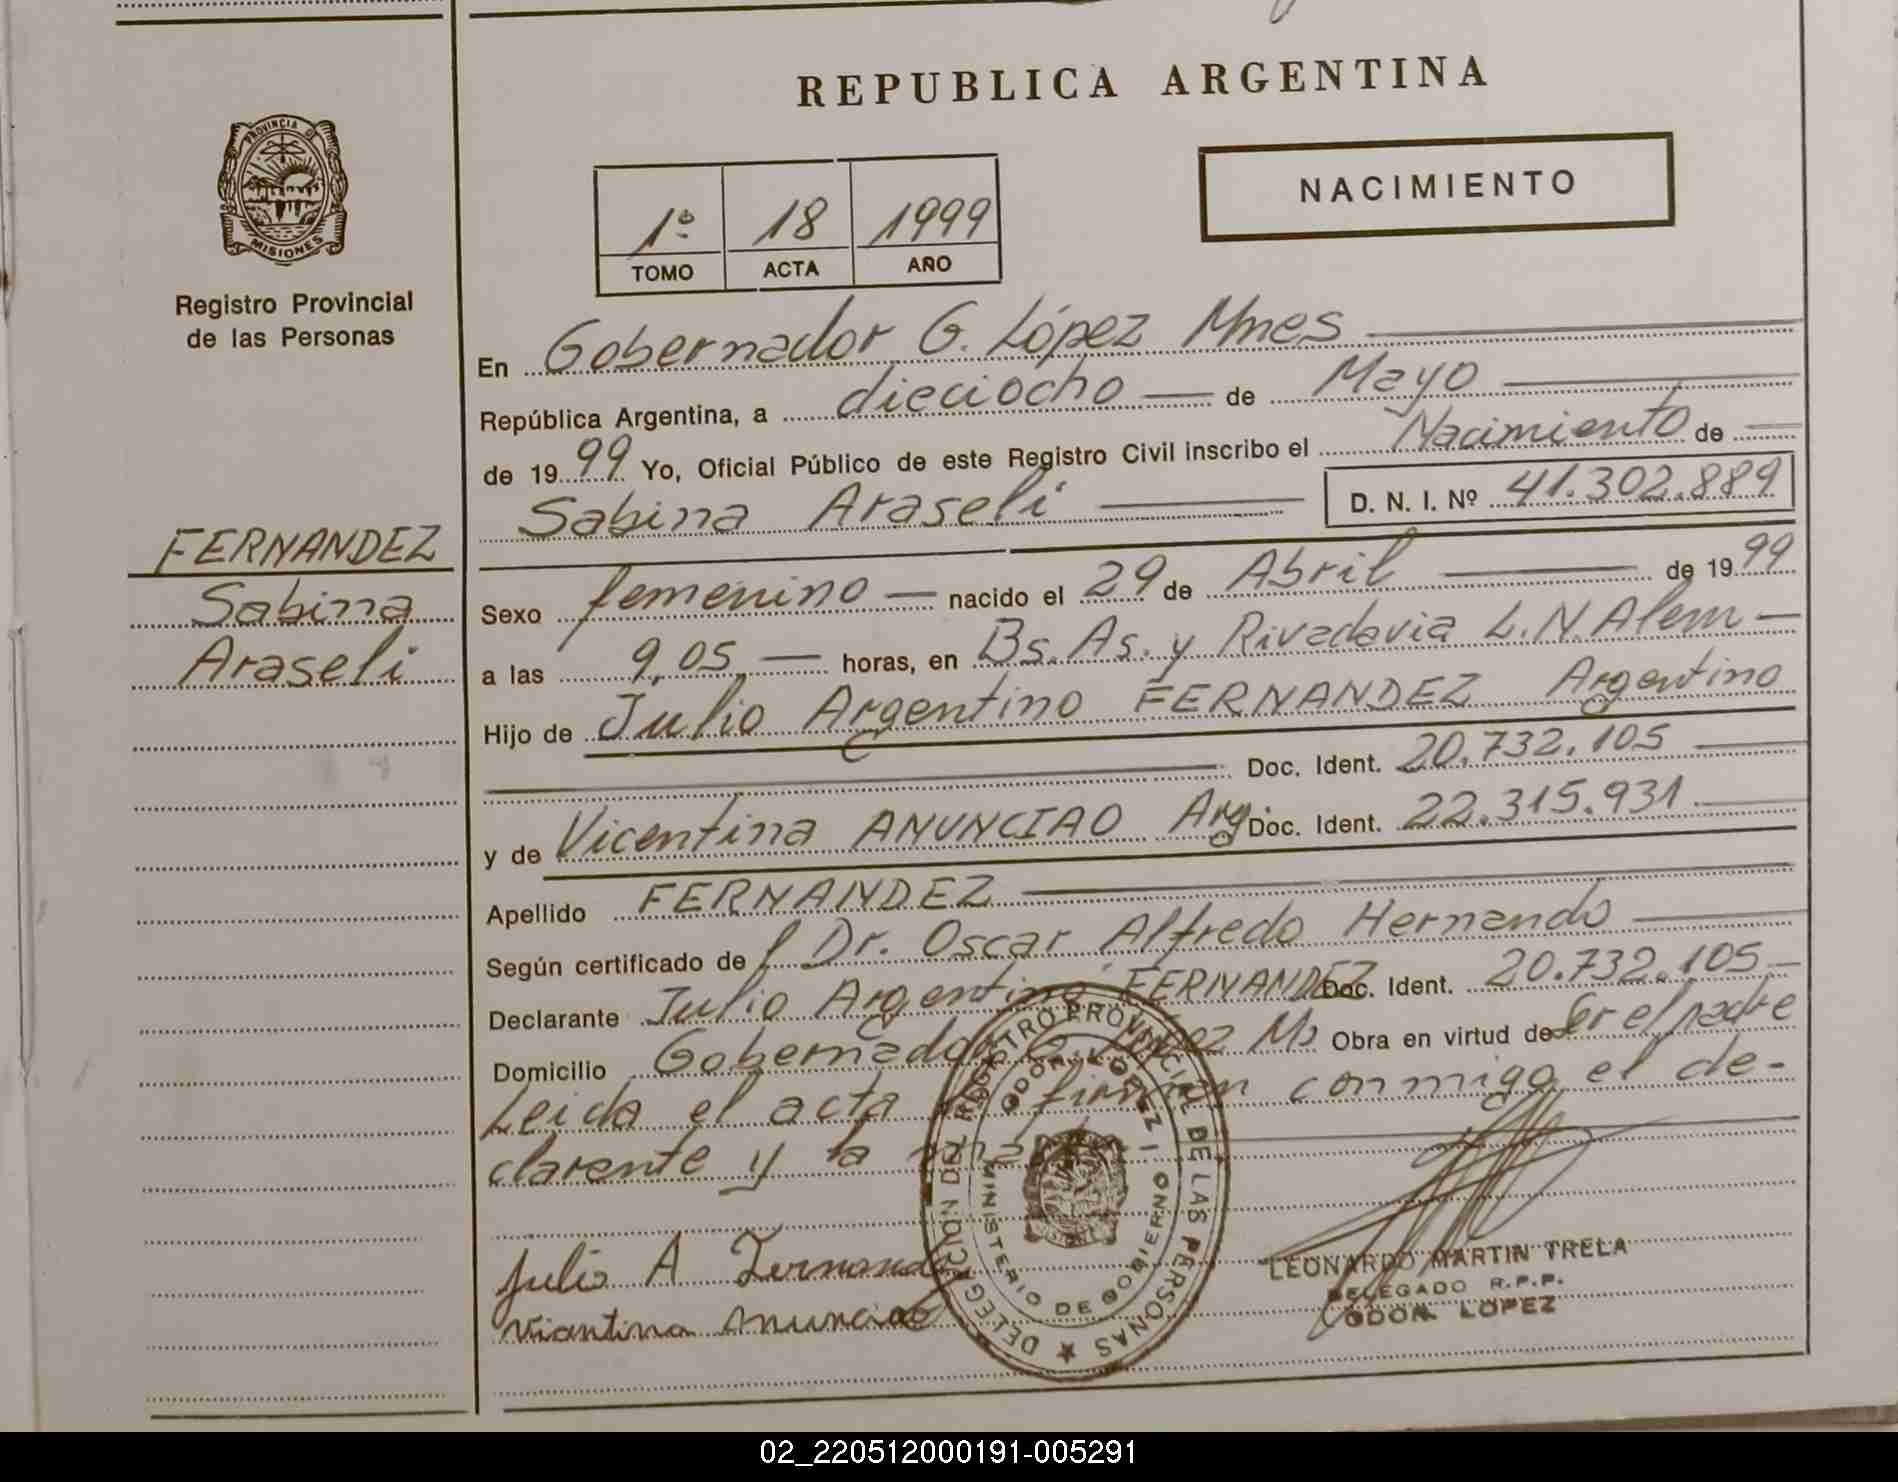 REPUBLICA ARGENTINA
PROVINCIA DE
MISIONES
Registro Provincial
de las Personas
1º 18 1999
TOMO ACTA AÑO
NACIMIENTO
En Gobernador G. López Mnes
República Argentina, a dieciocho de Mayo
de 1999 Yo, Oficial Público de este Registro Civil inscribo el Nacimiento de
Sabina Araseli D. N. I. Nº 41.302.889
FERNANDEZ
Sabina
Araseli
Sexo femenino nacido el 29 de Abril de 1999
a las 9,05 horas, en Bs. As. y Rivadavia L. N. Alem
Hijo de Julio Argentino FERNANDEZ Argentino
Doc. Ident. 20.732.105
y de Vicentina ANUNCIAO Arg. Doc. Ident. 22.315.931
Apellido FERNANDEZ
Según certificado de Dr. Oscar Alfredo Hernando
Declarante Julio Argentino FERNANDEZ Doc. Ident. 20.732.105
Domicilio Gobernador G. López Ms Obra en virtud de Ser el padre
Leida el acta la firman conmigo el de-
clarente y la madre
DELEGACION DEL REGISTRO PROVINCIAL DE LAS PERSONAS
GDOR. LOPEZ
MINISTERIO DE GOBIERNO
Julio A Fernandez
Viantina Anunciao
LEONARDO MARTIN TRELA
DELEGADO R.P.P.
GDOR. LOPEZ
02_220512000191-005291